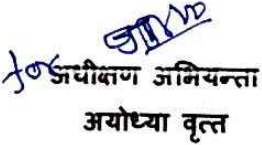 for अधीक्षण अभियन्ता
अयोध्या वृत्त